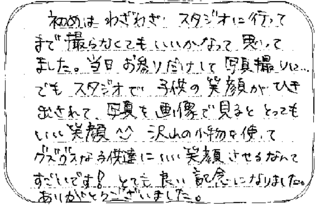 初めは わざわざ スタジオに行って
まで撮らなくてもいいかなって思って
ました。当日お参りだけして写真撮りに…
でもスタジオで 子供の笑顔がひき
出されて、写真を画像で見るととっても
いい笑顔 沢山の小物を使って
グズグズな子供達にいい笑顔させるなんて
すごいです！とても良い記念になりました。
ありがとうございました。